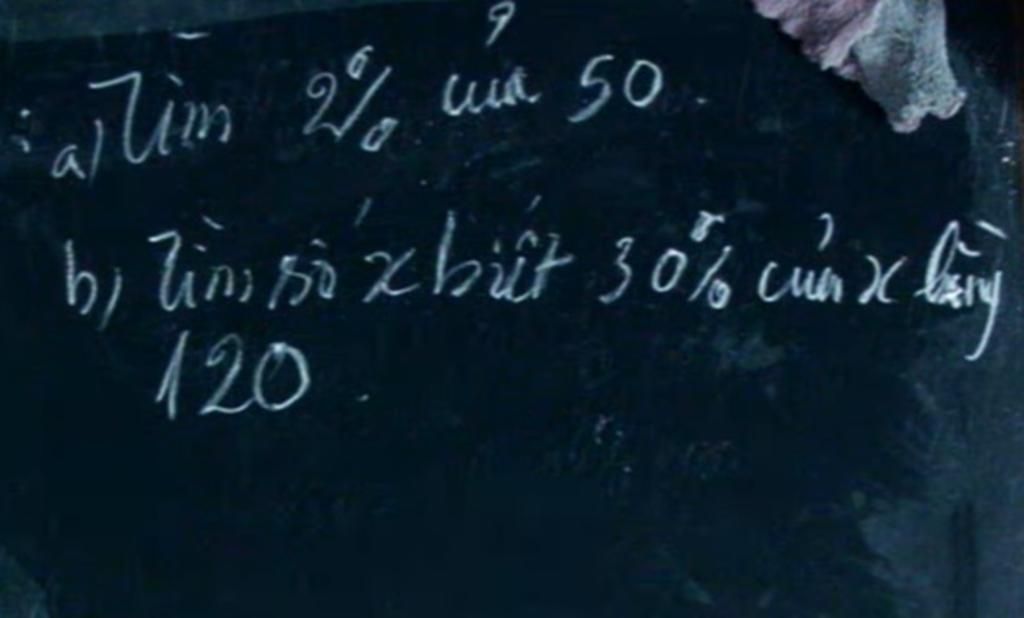 a) Tìm 2% của 50.
b) Tìm số x biết 30% của x bằng
120.